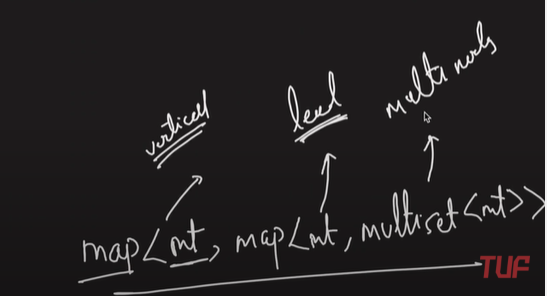 vertical
level
multi nodes
map<int, map<int, multiset<int>>
TUF